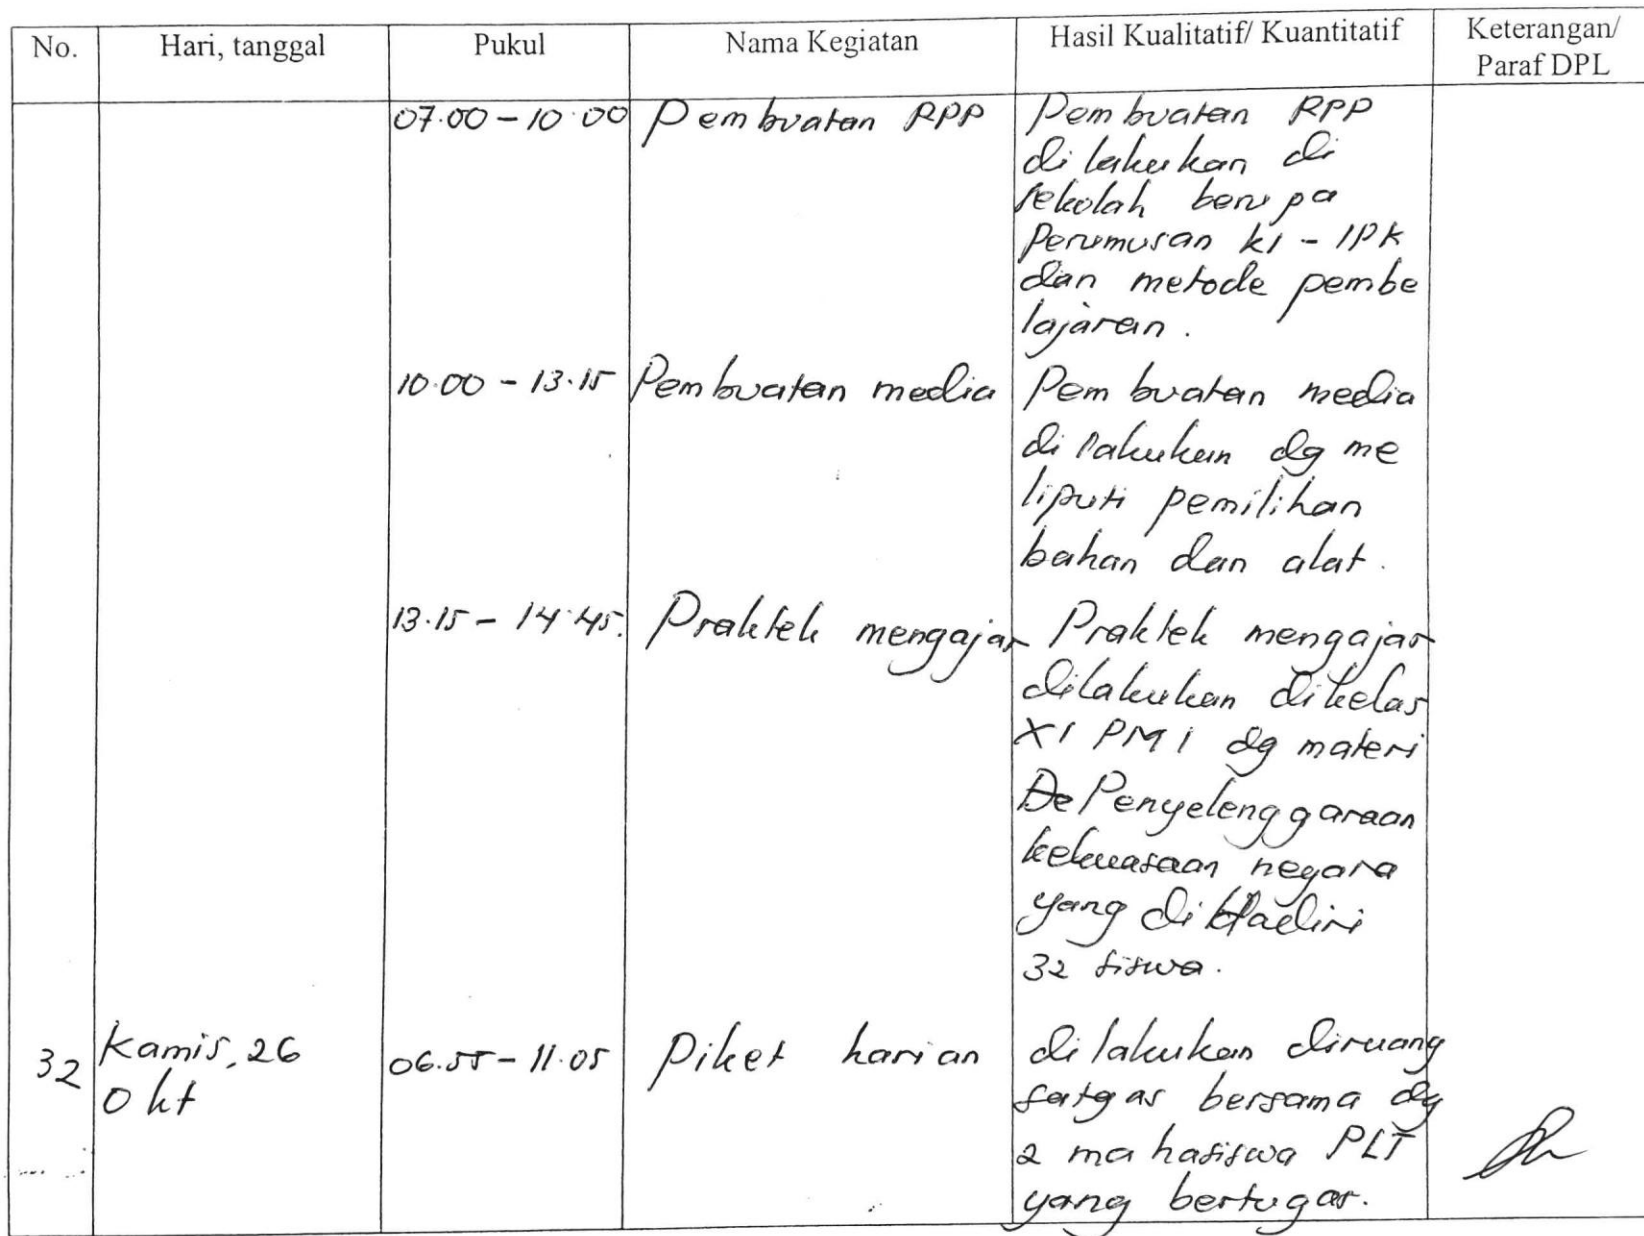 No. Hari, tanggal Pukul Nama Kegiatan Hasil Kualitatif/ Kuantitatif Keterangan/
Paraf DPL
07.00 – 10.00 Pembuatan RPP Pembuatan RPP
dilakukan di
sekolah berupa
Perumusan KI - IPK
dan metode pembe
lajaran.
10.00 – 13.15 Pembuatan media Pembuatan media
dilakukan dg me
liputi pemilihan
bahan dan alat.
13.15 – 14.45. Praktek mengajar Praktek mengajar
dilakukan dikelas
XI PM 1 dg materi
De Penyelenggaraan
kekuasaan negara
yang dihadiri
32 siswa.
32 Kamis, 26 06.55 – 11.05 Piket harian dilakukan diruang
Okt satgas bersama dg
2 mahasiswa PLT
yang bertugas.